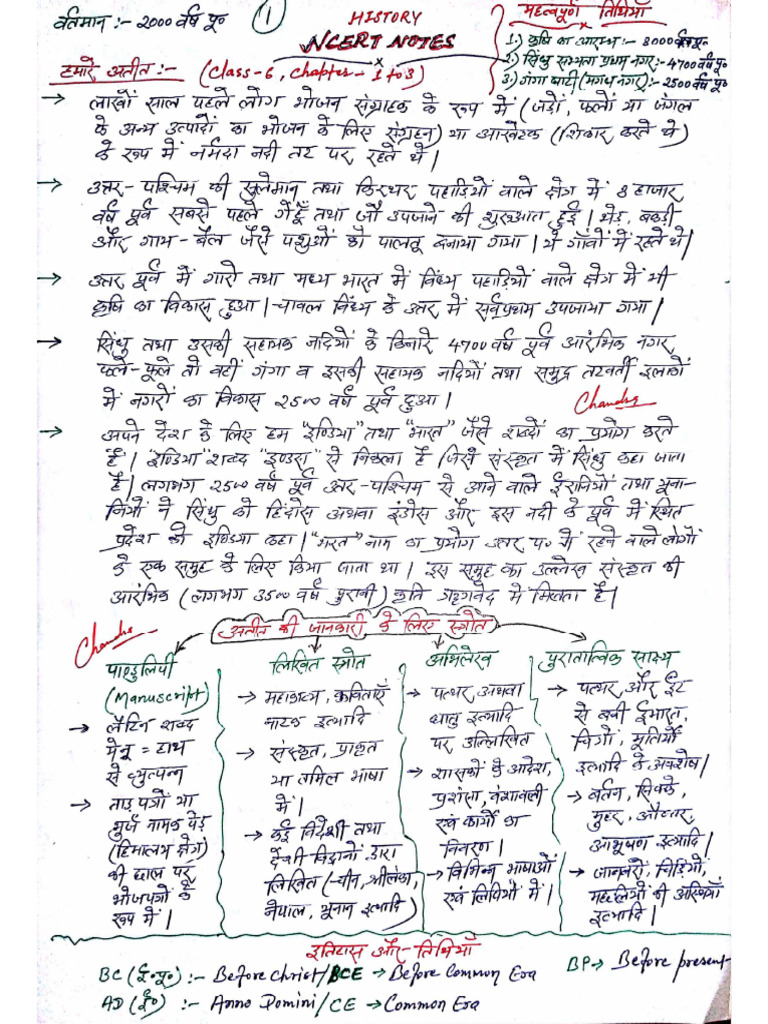 वर्तमान :- 2000 वर्ष पू०
1
HISTORY
NCERT NOTES
महत्वपूर्ण तिथियाँ
1.) कृषि का आरम्भ :- 8000 वर्ष पू०
2.) सिंधु सभ्यता प्रथम नगर :- 4700 वर्ष पू०
3.) गंगा घाटी (मगध नगर) :- 2500 वर्ष पू०
हमारे अतीत :- (Class-6, Chapter - 1 to 3)
→ लाखों साल पहले लोग भोजन संग्राहक के रूप में (जड़ों, फलों या जंगल
के अन्य उत्पादों का भोजन के लिए संग्रहन) या आखेटक (शिकार करते थे)
के रूप में नर्मदा नदी तट पर रहते थे।
→ उत्तर-पश्चिम की सुलेमान तथा किरथर पहाड़ियों वाले क्षेत्र में 8 हजार
वर्ष पूर्व सबसे पहले गेहूँ तथा जौ उपजाने की शुरुआत हुई। भेड़, बकरी
और गाय-बैल जैसे पशुओं को पालतू बनाया गया। ये गाँवों में रहते थे।
→ उत्तर पूर्व में गारो तथा मध्य भारत में विंध्य पहाड़ियों वाले क्षेत्र में भी
कृषि का विकास हुआ। चावल विंध्य के उत्तर में सर्वप्रथम उपजाया गया।
→ सिंधु तथा उसकी सहायक नदियों के किनारे 4700 वर्ष पूर्व आरंभिक नगर
फले-फूले तो वहीं गंगा व इसकी सहायक नदियों तथा समुद्र तटवर्ती इलाकों
में नगरों का विकास 2500 वर्ष पूर्व हुआ।
Chandra
→ अपने देश के लिए हम "इण्डिया" तथा "भारत" जैसे शब्दों का प्रयोग करते
हैं। "इण्डिया" शब्द "इण्डस" से निकला है जिसे संस्कृत में सिंधु कहा जाता
है। लगभग 2500 वर्ष पूर्व उत्तर-पश्चिम से आने वाले ईरानियों तथा यूना-
नियों ने सिंधु को हिंदोस अथवा इंडोस और इस नदी के पूर्व में स्थित
प्रदेश को इण्डिया कहा। "भरत" नाम का प्रयोग उत्तर प० में रहने वाले लोगों
के एक समूह के लिए किया जाता था। इस समूह का उल्लेख संस्कृत की
आरंभिक (लगभग 3500 वर्ष पुरानी) कृति ऋग्वेद में मिलता है।
अतीत की जानकारी के लिए स्त्रोत
Chandra
पाण्डुलिपी
(Manuscript)
→ लैटिन शब्द
मेनू = हाथ
से व्युत्पन्न
→ ताड़ पत्रों या
भुर्ज नामक पेड़
(हिमालय क्षेत्र)
की छाल पर
भोजपत्रों के
रूप में।
लिखित स्त्रोत
→ महाकाव्य, कविताएँ
नाटक इत्यादि
→ संस्कृत, प्राकृत
या तमिल भाषा
में।
→ कई विदेशी तथा
देशी विद्वानों द्वारा
लिखित (चीन, श्रीलंका,
नेपाल, भूनान इत्यादि)
अभिलेख
→ पत्थर अथवा
धातु इत्यादि
पर उल्लिखित
→ शासकों के आदेश,
प्रशंसा, वंशावली
एवं कार्यों का
विवरण।
→ विभिन्न भाषाओं
एवं लिपियों में।
पुरातात्विक साक्ष्य
→ पत्थर, और ईंट
से बनी ईमारत,
चित्रों, मूर्तियों
इत्यादि के अवशेष।
→ बर्तन, सिक्के,
मुहर, औजार,
आभूषण इत्यादि।
→ जानवरों, चिड़ियों,
मछलियों की अस्थियाँ
इत्यादि।
इतिहास और तिथियाँ
BC (ई०पू०) :- Before Christ/BCE → Before Common Era
BP → Before present
AD (ई०) :- Anno Domini/CE → Common Era